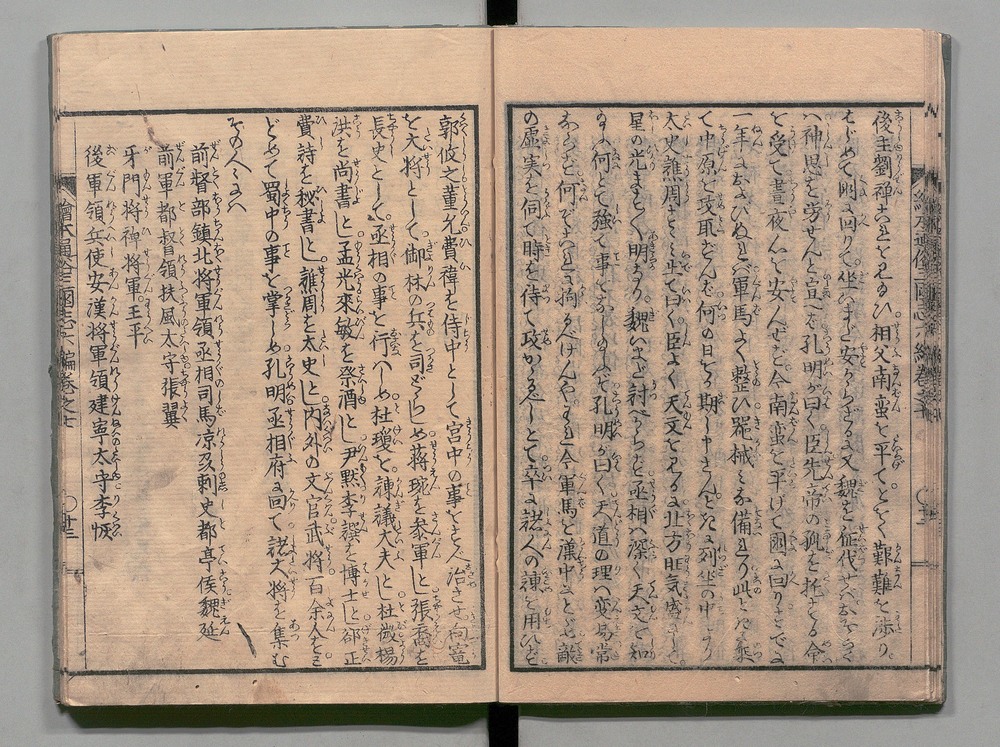 後主劉禅これをきゝたまひ相父南蛮を平てとをく艱難を渉り
はじめて明に回りて坐いまだ安からざるに又魏を征伐せバおそらく
ハ神思を労せんと宣へバ孔明が曰く臣先帝の孤を托するの命
を受て昼夜心を安んせず今南蛮を平げて国に回りすでに
一年におよひぬれバ軍馬よく整ひ器械ミな備れり此ときに乗
て中原を攻取ずんバ何の日をか期し申さんときに列坐の中より
太史譙周すゝミ出て曰く臣よく天文を見るに北方旺気盛にして
星の光ますく明なり魏いまだ討べからず丞相ハ深く天文を知
ながら何とて強て事をなし給ふぞ孔明が曰く天道の理ハ変易常
ならず何ぞこれに拘るべけんや今軍馬を漢中にとゞめ敵
の虚実を伺て時を待て攻かゝるべしとて卒に諸人の諫を用ひず
郭攸之董允費禕を侍中として宮中の事をすべ治させ向寵
を大将として御林の兵を司どらしめ蒋琬を参軍とし張裔を
長史として丞相の事を行ハしめ杜瓊を諫議大夫とし杜微楊
洪を尚書とし孟光來敏を祭酒とし尹黙李譔を博士とし郤正
費詩を秘書とし譙周を太史とし内外の文官武将百余人をと
どめて蜀中の事を掌しめ孔明丞相府に回て諸大将を集む
その人々にハ
前督部鎮北将軍領丞相司馬凉州刺史都亭侯魏延
前軍都督領扶風太守張翼
牙門将裨将軍王平
後軍領兵使安漢将軍領建寧太守李恢